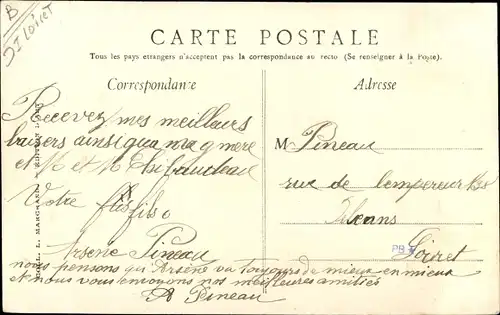 B
DI Loiret
CARTE POSTALE
Tous les pays etrangers n'acceptent pas la correspondance au recto (Se renseigner à la Poste).
Correspondance
Adresse
Recevez mes meilleurs
baisers ainsi qua ma g mère
et M et M Thibaudeau
Votre fils
Arsène Pineau
nous pensons que Arsène va toujours de mieux en mieux
et nous vous envoyons nos meilleures amitiés
A Pineau
M Pineau
rue de l'empereur
Orléans
Loiret
COLL. L. MARCHAND